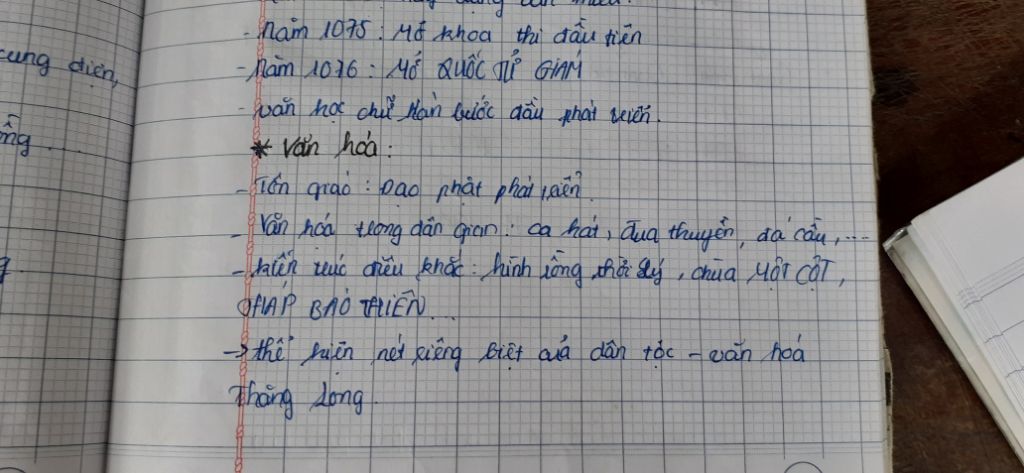 - Năm 1075 : Mở khoa thi đầu tiên
cung điện,
- Năm 1076 : Mở QUỐC TỬ GIÁM
- văn học chữ Hán bước đầu phát triển.
* Văn hóa :
- Tôn giáo : Đạo phật phát triển.
- Văn hóa trong dân gian : ca hát, đua thuyền, đá cầu, ...
- kiến trúc điêu khắc : hình rồng thời Lý, chùa MỘT CỘT,
THÁP BÁO THIÊN...
→ thể hiện nét riêng biệt của dân tộc - văn hoá
Thăng Long.